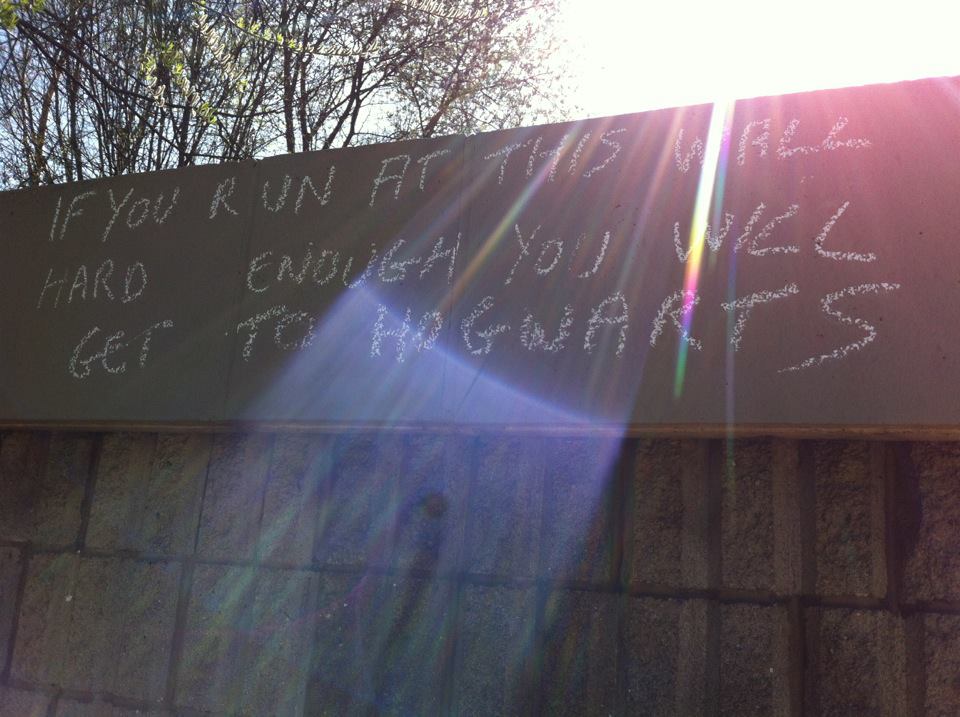 IF YOU RUN AT THIS WALL
HARD ENOUGH YOU WILL
GET TO HOGWARTS